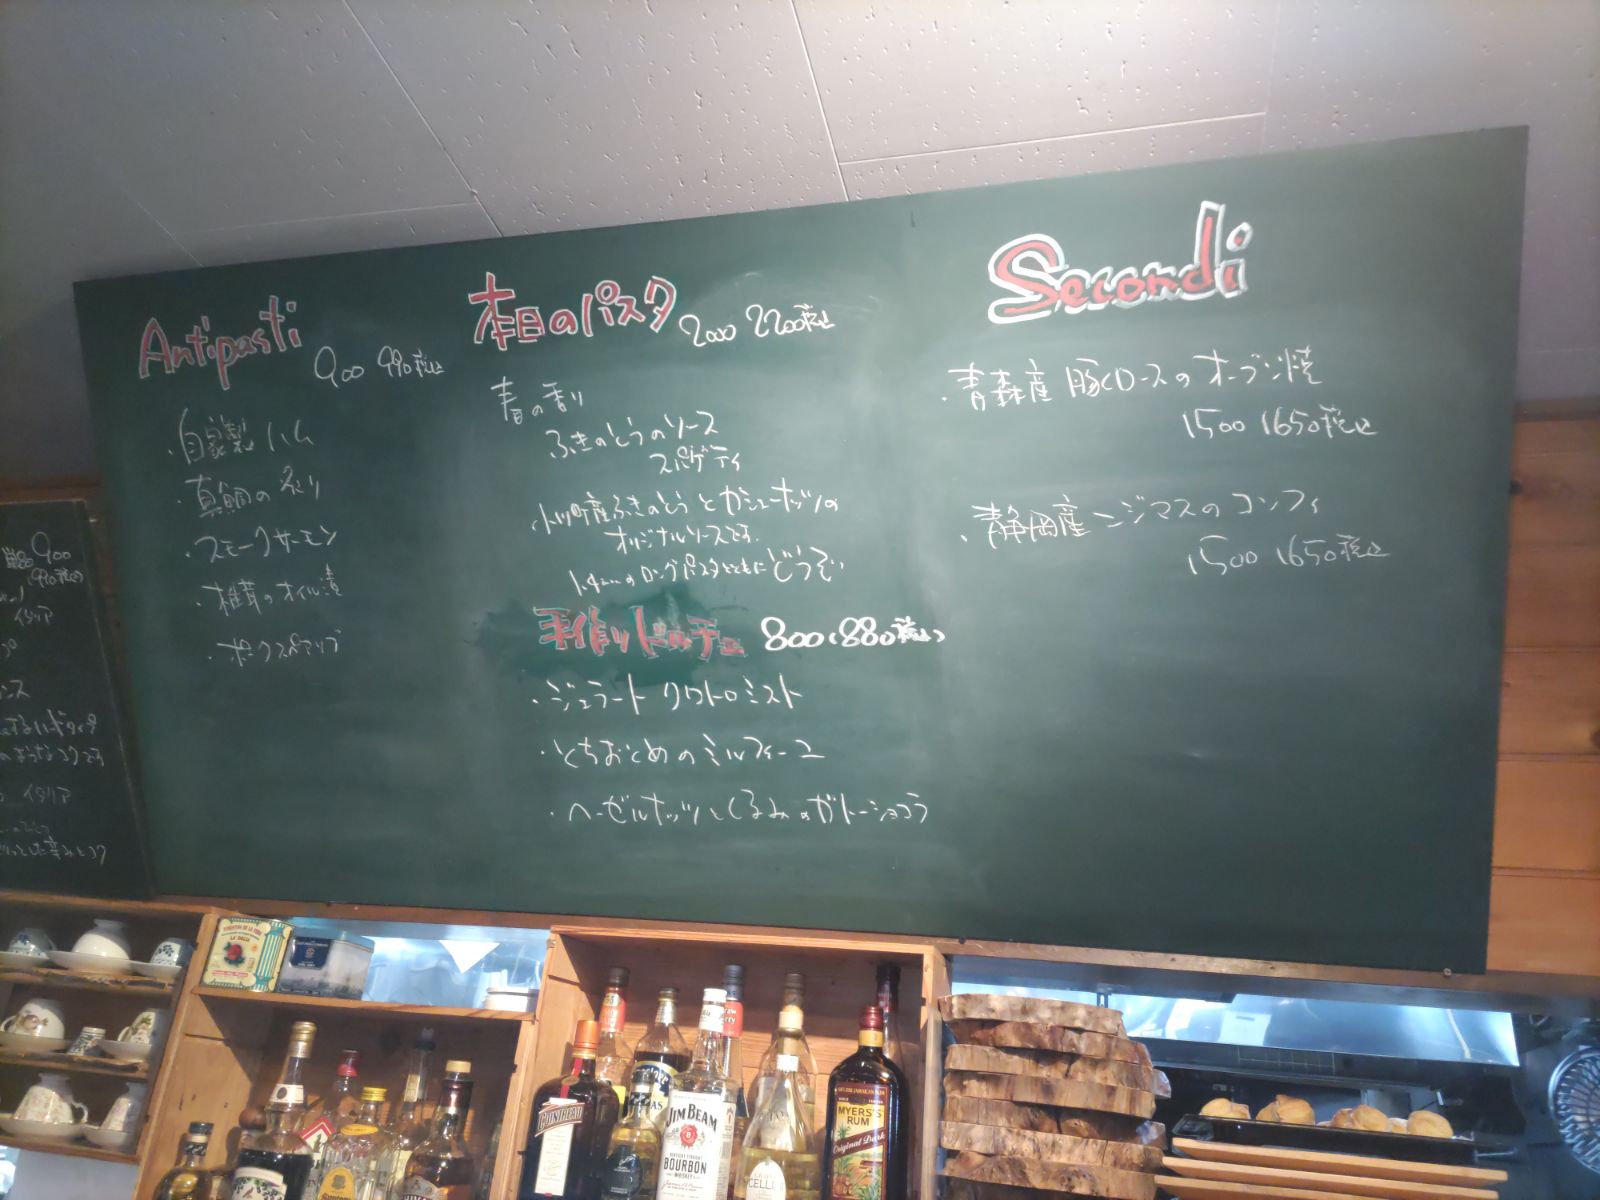 Antipasti
900 990税込
・自家製ハム
・真鯛の炙り
・スモークサーモン
・椎茸のオイル漬
・ポークスペアリブ
本日のパスタ
2000 2200税込
春の香り
ふきのとうのソース
スパゲティ
小川町産ふきのとうとカシューナッツの
オリジナルソースです。
1.4mmのロングパスタとともにどうぞ
手作りドルチェ 800(880税込)
・ジェラート クワトロミスト
・とちおとめのミルフィーユ
・ヘーゼルナッツとくるみのガトーショコラ
Secondi
・青森産 豚ロースのオーブン焼
1500 1650税込
・静岡産ニジマスのコンフィ
1500 1650税込
単品 900
(990税込)
イタリア
イタリア
LA DALIA
COINTREAU
JIM BEAM
KENTUCKY STRAIGHT
BOURBON
WHISKEY
MYERS'S
RUM
Original Dark